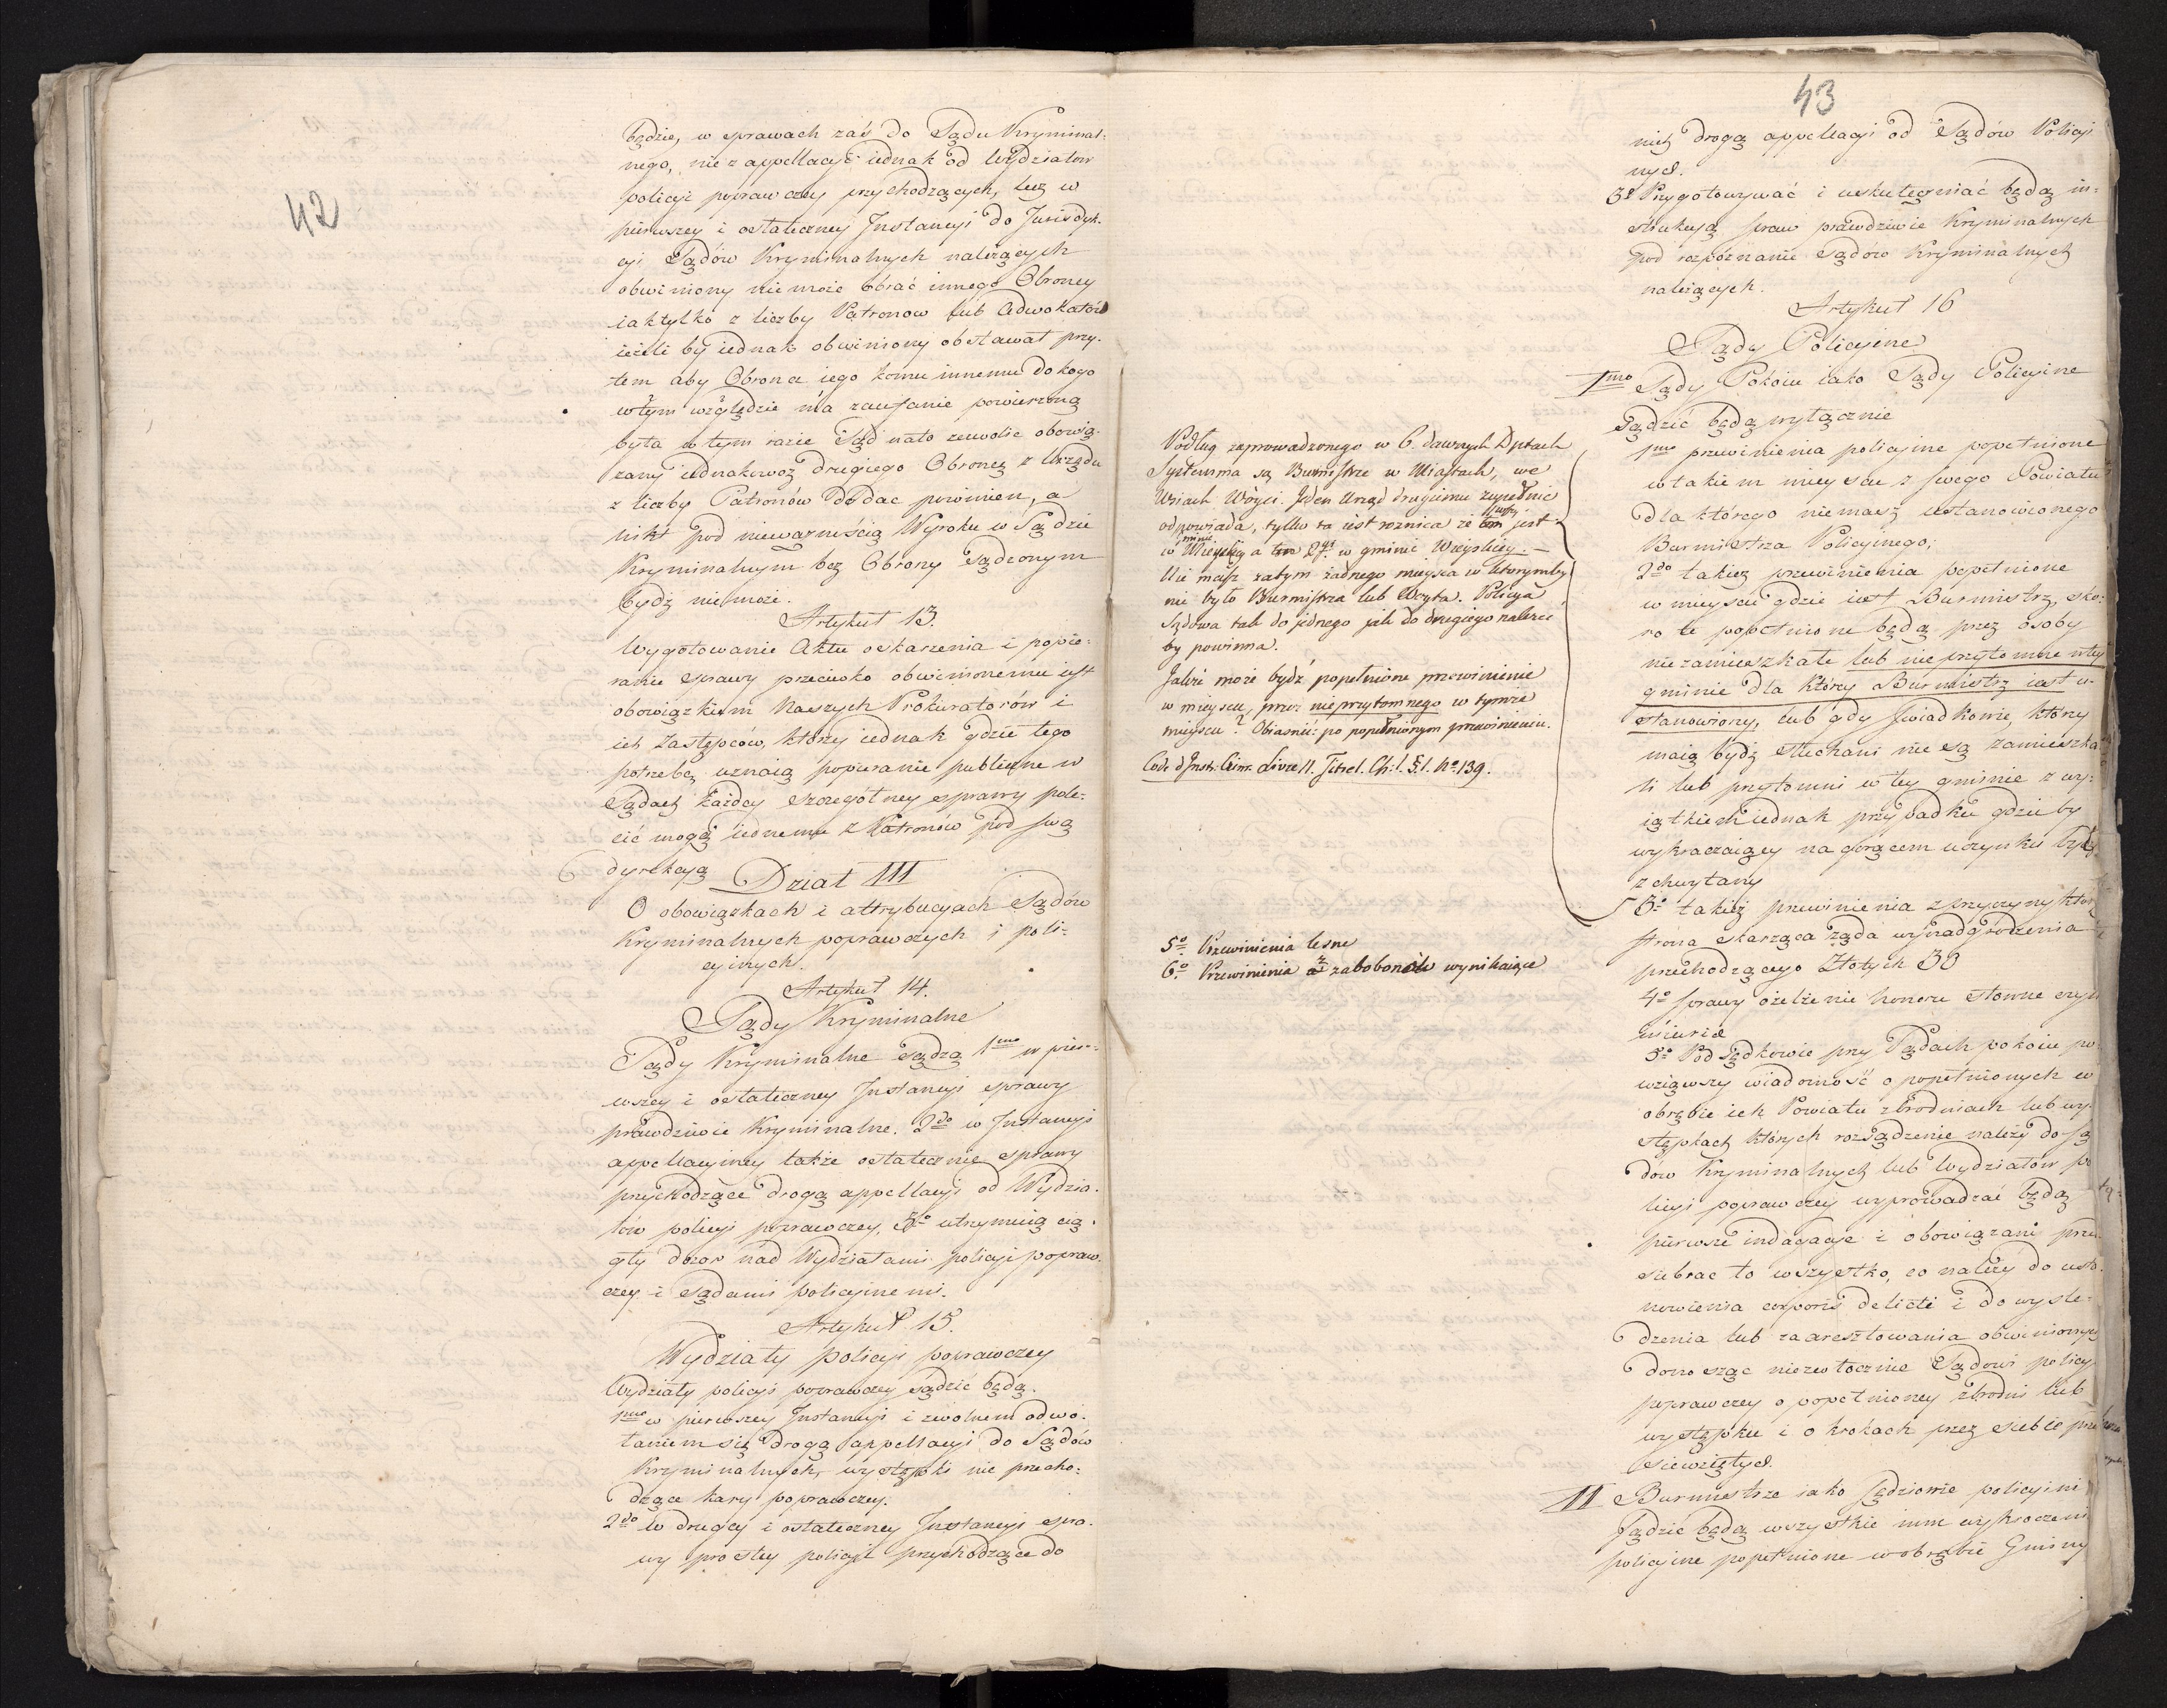 42
będzie, w sprawach zaś do Sądu Kryminal-
nego, nie z appellacyi iednak od Wydziałow
policyi poprawczey przychodzących, lecz w
pierwszey i ostateczney Instancyi do Jurisdyk-
cyi Sądów Kryminalnych należących
obwiniony nie może obrać innego Obrońcy
iak tylko z liczby Patronow lub Adwokatów
ieżeli by iednak obwiniony obstawał przy-
tem aby Obrona iego komu innemu do kogo
w tym względzie ma zaufanie powierzoną
była w tym razie Sąd na to zezwolić obowią-
zany iednakowoż drugiego Obrońcę z Urzędu
z liczby Patronów dodać powinien, a
nikt pod nieważnością Wyroku w Sądzie
Kryminalnym bez Obrony sądzonym
bydź nie może.
Artykuł 13.
Wygotowanie Aktu oskarzenia i popie-
ranie sprawy przeciwko obwinionemu iest
obowiązkiem Naszych Prokuratorów i
ich Zastępców, którzy iednak gdzie tego
potrzebę uznaią popieranie publiczne w
Sądach każdey szczegółney sprawy pole-
cić mogą iednemu z Patronów pod swą
dyrekcyą
Dział III
O obowiązkach i attrybucyach Sądów
Kryminalnych poprawczych i poli-
cyinych.
Artykuł 14.
Sądy Kryminalne
Sądy Kryminalne sądzą 1mo w pier-
wszey i ostateczney Instancyi sprawy
prawdziwie Kryminalne. 2do w Instancyi
appellacyiney także ostatecznie sprawy
przychodzące drogą appellacyi od Wydzia-
łów policyi poprawczey, 3o utrzymuią cią-
gły dozor nad Wydziałami policyi popraw-
czey i Sądami policyinemi.
Artykuł 15.
Wydziały policyi poprawczey
Wydziały policyi poprawczey sądzić będą.
1mo w pierwszey Instancyi i z wolnem odwo-
łaniem się drogą appellacyi do Sądów
Kryminalnych, występki nie przecho-
dzące kary poprawczey.
2do w drugiey i ostateczney Instancyi spra-
wy prostey policyi przychodzące do
43
nich drogą appellacyi od Sądów Policyi
nych.
3o Przygotowywać i uskuteczniać będą in-
strukcyą spraw prawdziwie Kryminalnych
pod rozpoznanie Sądów Kryminalnych
należących.
Artykuł 16
Sądy Policyine
Imo Sądy Pokoiu iako Sądy Policyine
Sądzić będą wyłącznie
1mo przewinienia policyine popełnione
w takiem mieyscu z swego Powiatu
dla którego niemasz ustanowionego
Burmistrza Policyinego;
2do takież przewinienia popełnione
w mieyscu gdzie iest Burmistrz, sko-
ro te popełnione będą przez osoby
niezamieszkałe lub nieprzytomne w tey
gminie dla którey Burmistrz iest u-
stanowiony, lub gdy świadkowie, którzy
maią bydź słuchani nie są zamieszka
li lub przytomni w tey gminie z wy-
iątkiem iednak przypadku gdzie by
wykraczaiący na gorącem uczynku był
zchwytany
3o takież przewinienia z przyczyny którey
strona skarząca żąda wynadgrodzenia
przechodzącego Złotych 30
4o sprawy o zelżenie honoru słowne czyli
iniurie
5o Podsędkowie przy Sądach pokoiu po
wziąwszy wiadomość o popełnionych w
obrębie ich Powiatu zbrodniach lub wy-
stępkach których rozsądzenie należy do Są
dów Kryminalnych lub Wydziałów po
licyi poprawczey wyprowadzać będą
pierwsze indagacye i obowiązani przed
siebrać to wszystko, co należy do usta-
nowienia corporis delicti i do wyśle-
dzenia lub zaaresztowania obwinionych
donosząc niezwłocznie Sądowi policyi
poprawczey o popełnioney zbrodni lub
występku i o krokach przez siebie przed
siewziętych.
II Burmistrze iako Sędziowie policyini
Sądzić będą wszystkie inne wykroczenia
policyine popełnione w obrębie Gminy
Podług zaprowadzonego w 6. dawnych Dptach
Systemma są Burmistrze w Miastach, we
Wsiach Wóyci. Jeden Urząd drugiemu zupełnie
odpowiada, tylko ta iest roznica że ten pierwszy jest
w gminie Mieyskiey a ten 2gi w gminie Wieyskiey. —
Nie masz zatym żadnego mieysca w którymby
nie było Burmistrza lub Woyta. Policya
Sądowa tak do jednego jak do drugiego należeć
by powinna.
Jakże może bydź popełnione przewinienie
w mieyscu, przez nieprzytomnego w tymże
mieyscu? Obiasnić: po popełnionym przewinieniu.
Code d'Instr: Crim. Livre II. Titre I. Ch: I. §. 1. No 139.
5o Przewinienia leśne
6o Przewinienia z zabobonów wynikaiące